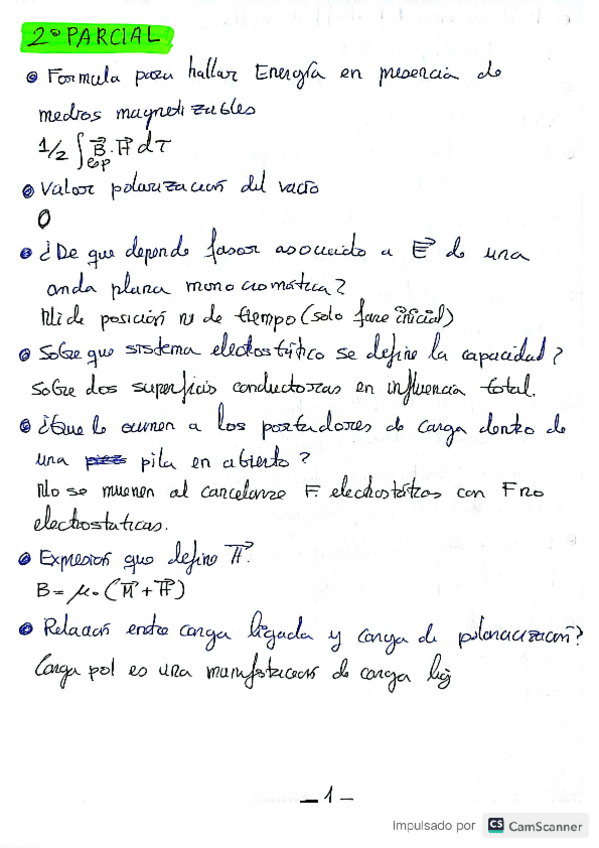 2º PARCIAL
Formula para hallar Energía en presencia de
medios magnetizables
1/2 ∫esp B⃗·H⃗ dτ
Valor polarización del vacío
0
¿De que depende fasor asociado a E⃗ de una
onda plana monocromática?
Ni de posición ni de tiempo (solo fase inicial)
Sobre que sistema electrostático se define la capacidad?
Sobre dos superficies conductoras en influencia total.
¿Que le ocurren a los portadores de carga dentro de
una pila en abierto?
No se mueven al cancelarse F. electrostáticas con F no
electrostaticas.
Expresión que define H⃗.
B = μ₀ (M⃗ + H⃗)
Relación entre carga ligada y carga de polarización?
Carga pol es una manifestación de carga lig
- 1 -
Impulsado por CS CamScanner